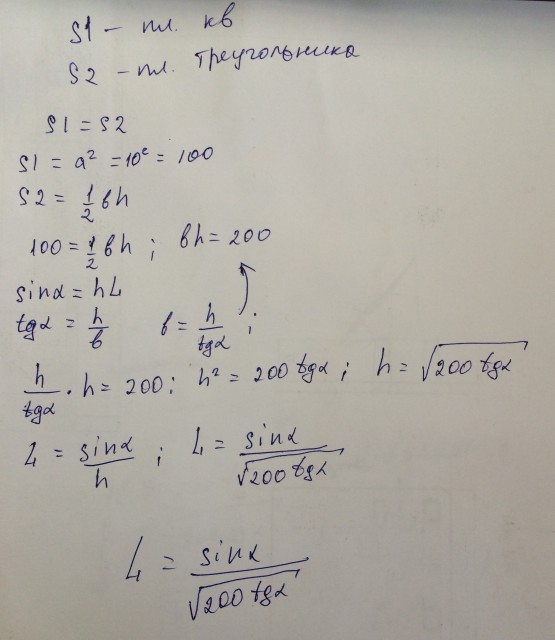 S1 – пл. кв
S2 – пл. треугольника
S1 = S2
S1 = a² = 10² = 100
S2 = 1/2 вh
100 = 1/2 вh ; вh = 200
sinα = hL
tgα = h/в в = h/tgα ;
h/tgα · h = 200 ; h² = 200 tgα ; h = √200 tgα
L = sinα/h ; L = sinα/√200 tgα
L = sinα/√200 tgα